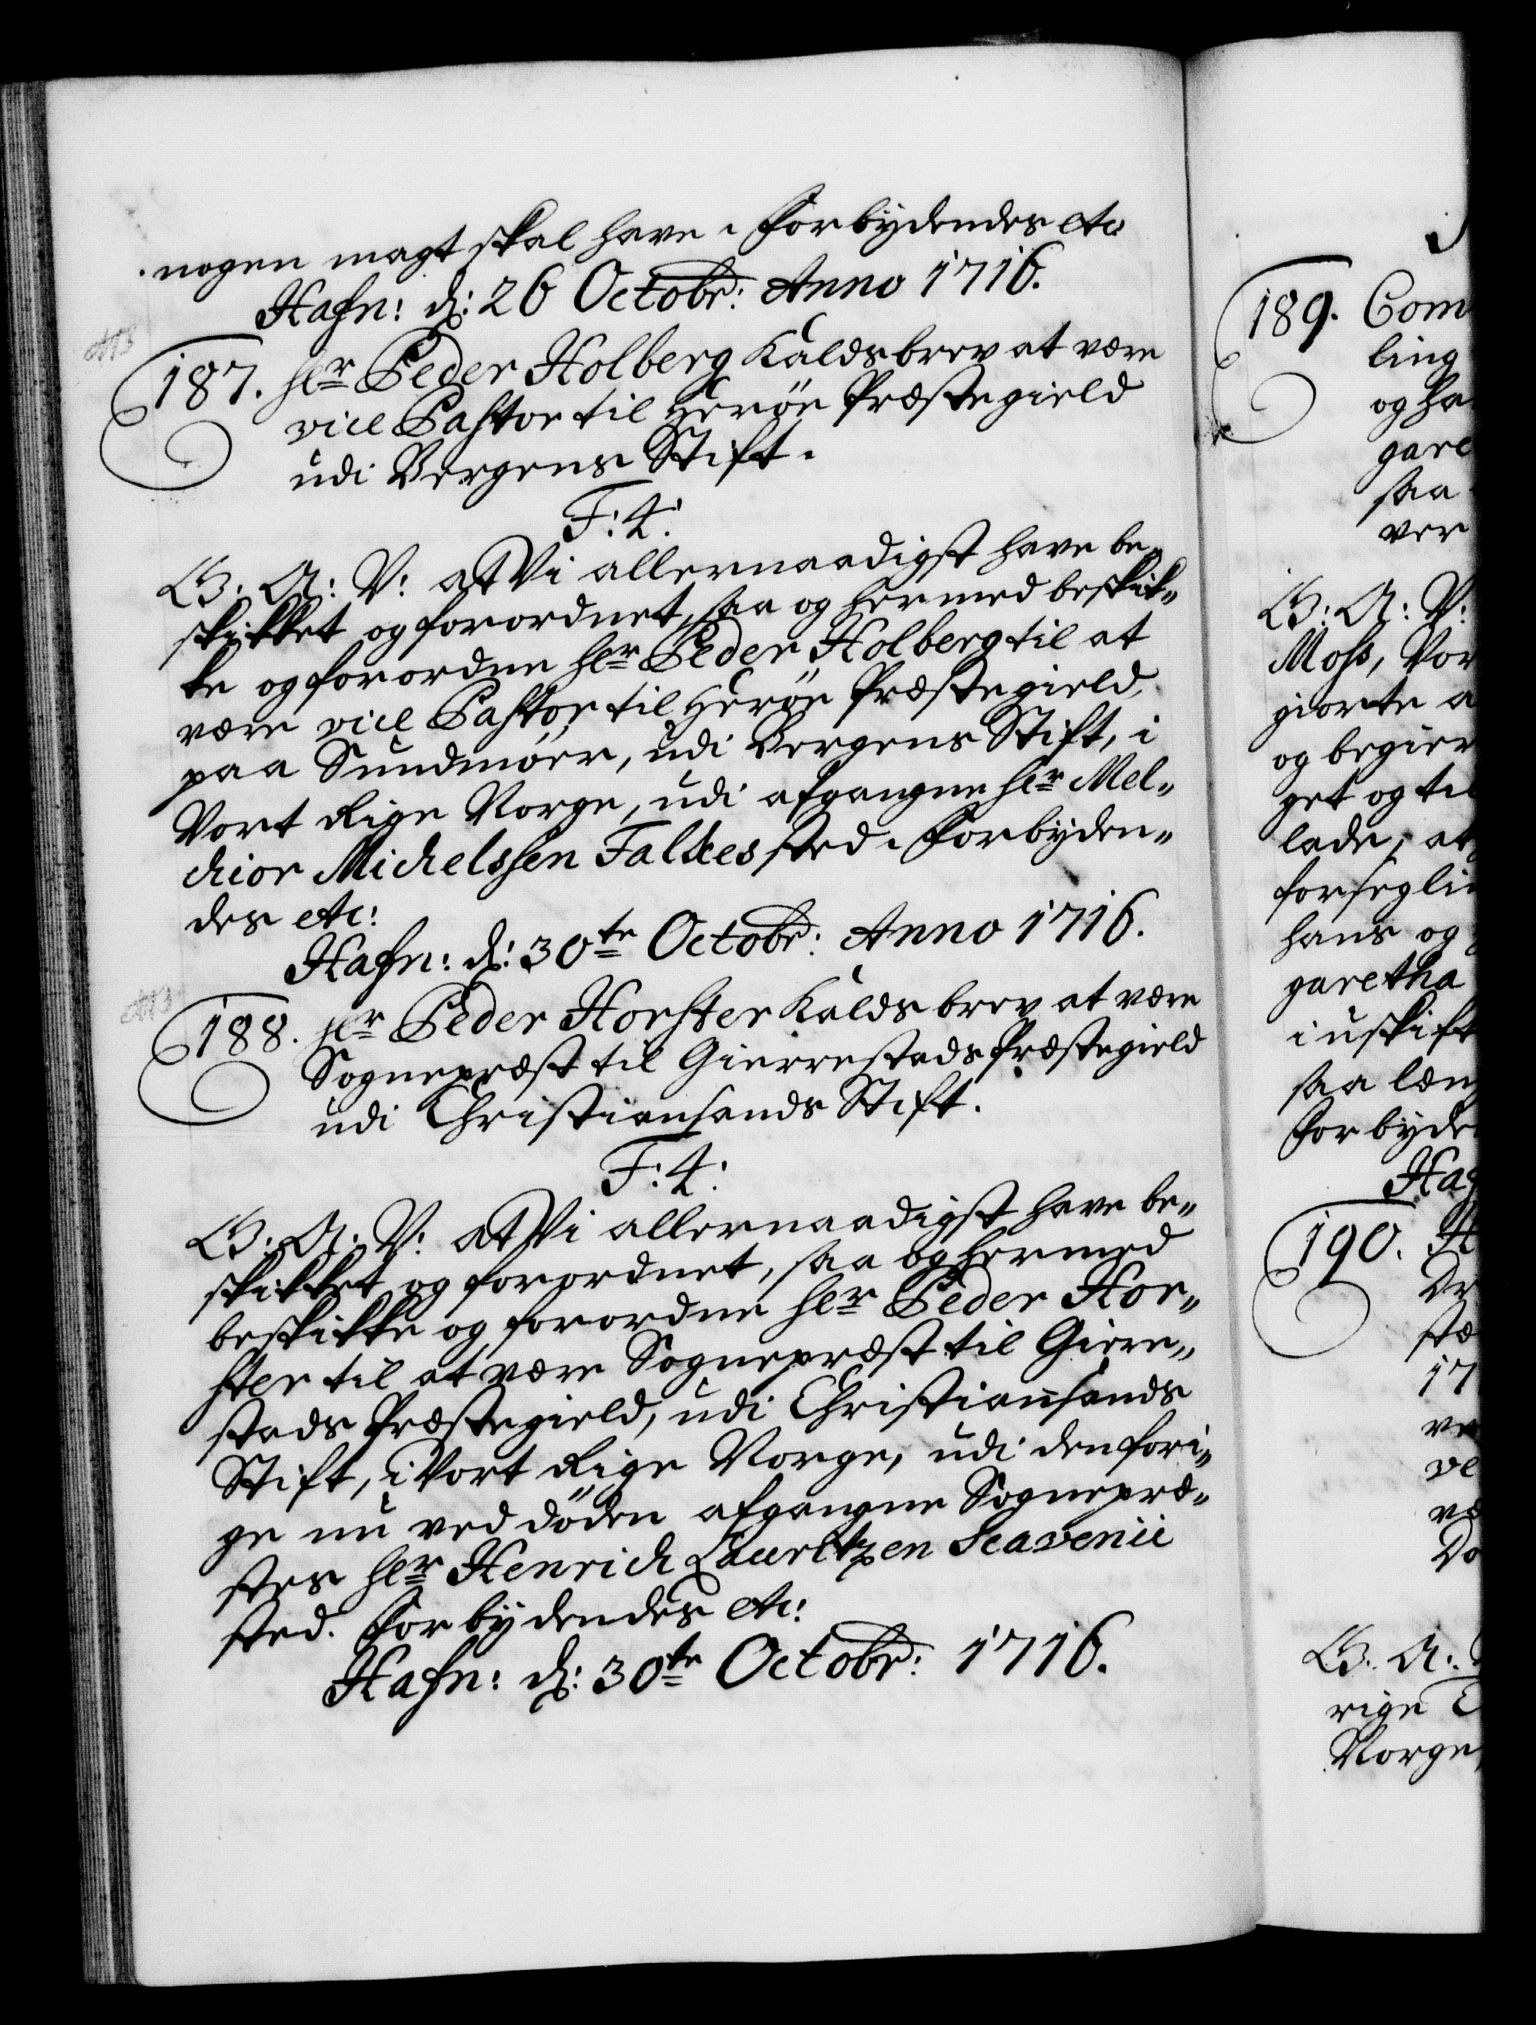 nogen magt skal have. Forbydendes etc
Hafn: d: 26 Octobr: Anno 1716.
187. hlr Peder Holberg Kaldsbrev at være
vice Pastor til Herøe Præstegield
udi Bergens Stift.
F: 4:
G: A: V: at Vi allernaadigst have be„
skikket og forordnet, saa og hermed beskik„
ke og forordne hlr Peder Holberg til at
være vice Pastor til Herøe Præstegield
paa Sundmøer, udi Bergens Stift, i
Vort Rige Norge, udi afgangne hlr Mel„
chior Michelssen Falckes sted. Forbyden„
des etc:
Hafn: d: 30te Octobr: Anno 1716.
188. hlr Peder Horster Kalds brev at være
Sognepræst til Gierrestads Præstegield
udi Christiansands Stift.
F: 4:
G: A: V: at Vi allernaadigst have be„
skikket og forordnet, saa og hermed
beskikke og forordne hlr Peder Hor„
ster til at være Sognepræst til Giere„
stads Præstegield, udi Christiansands
Stift, i Vort Rige Norge, udi den fori„
ge nu ved døden afgangne Sognepræ„
stes hlr Henrich Lauritzen Scavenii
sted. Forbydendes etc:
Hafn: d: 30te Octobr: 1716.
189. Com
ling
og Ha
gare
saa
ver
G: A: V:
Moss, Vor
giorte a
og begier
get og til
lade, at
forseglin
hans og
garetha
i uskift
saa læn
Forbyde
Haf
190.
Dr
stæ
17
ve
ve
væ
Do
G: A:
rige
Norge,